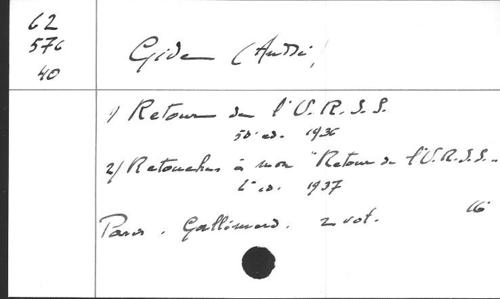 62
576
40
Gide (André)
1) Retour de l'U.R.S.S.
50e ed. 1936
2) Retouches à mon "Retour de l'U.R.S.S."
6e ed. 1937
Paris. Gallimard. 2 vol. 16